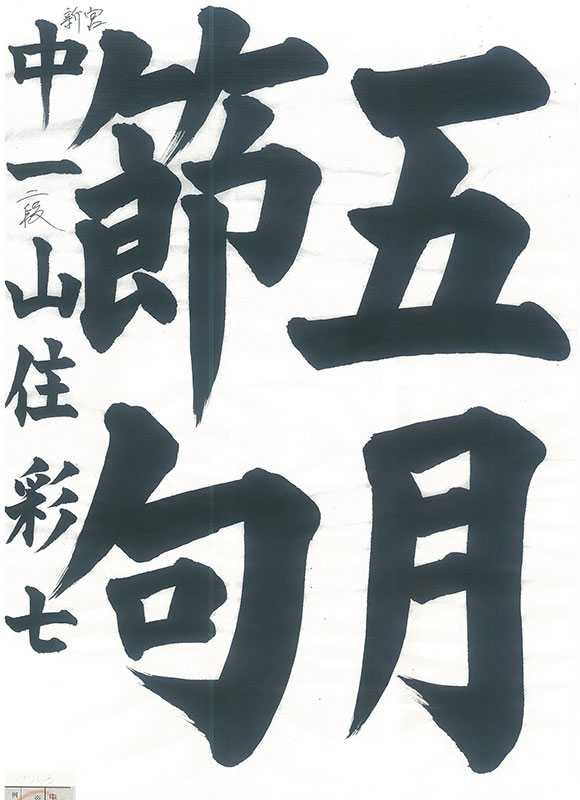 五月
節句
新宮
中一 二段 山住彩七